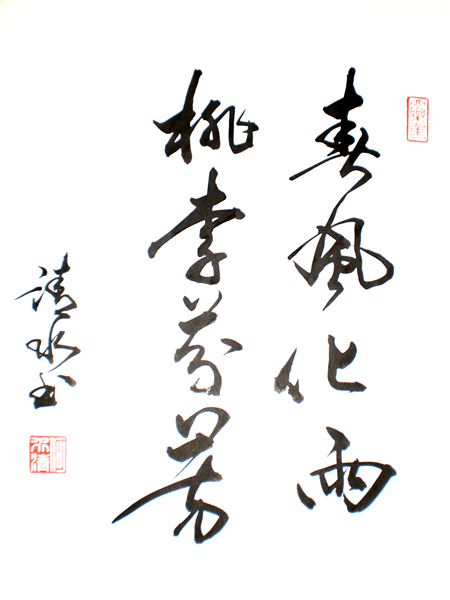 春風化雨
桃李芬芳
清水书